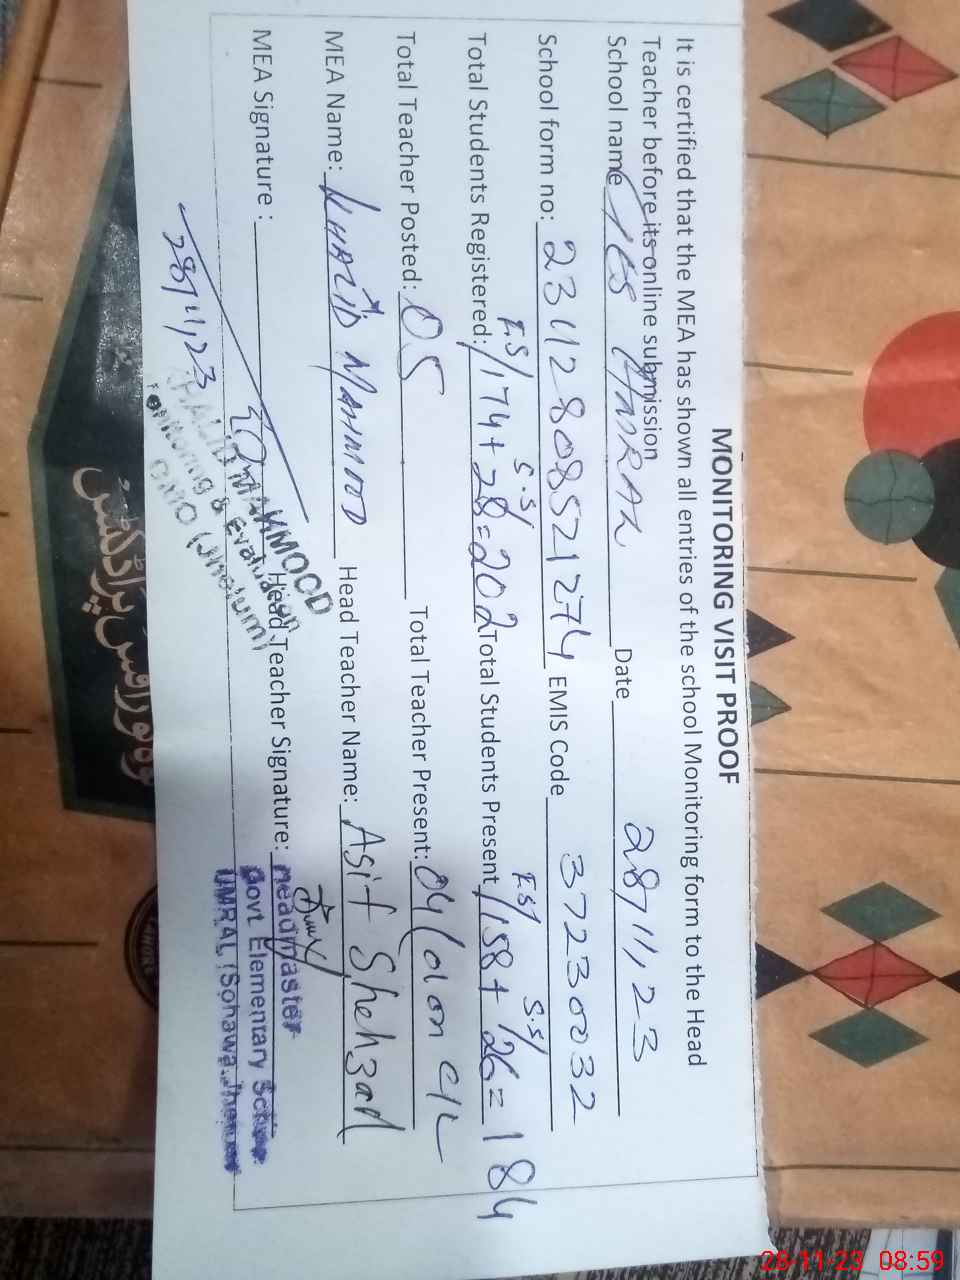 MONITORING VISIT PROOF
It is certified that the MEA has shown all entries of the school Monitoring form to the Head
Teacher before its online submission
School name Date 28/11/23
School form no: 23112808521274 EMIS Code 37230032
E.S/ S.S/ E.S/ S.S/
Total Students Registered: 174+28=202 Total Students Present 158+26=184
Total Teacher Posted: 05 Total Teacher Present: 04/01 on C/L
MEA Name: KHALID MAHMOOD Head Teacher Name: Asif Shehzad
MEA Signature : Head Teacher Signature:
28/11/23
KHALID MAHMOOD
Monitoring & Evaluation
(Jhelum)
Headmaster
Govt Elementary School
UMRAL (Sohawa Jhelum)
28-11-23 08:59